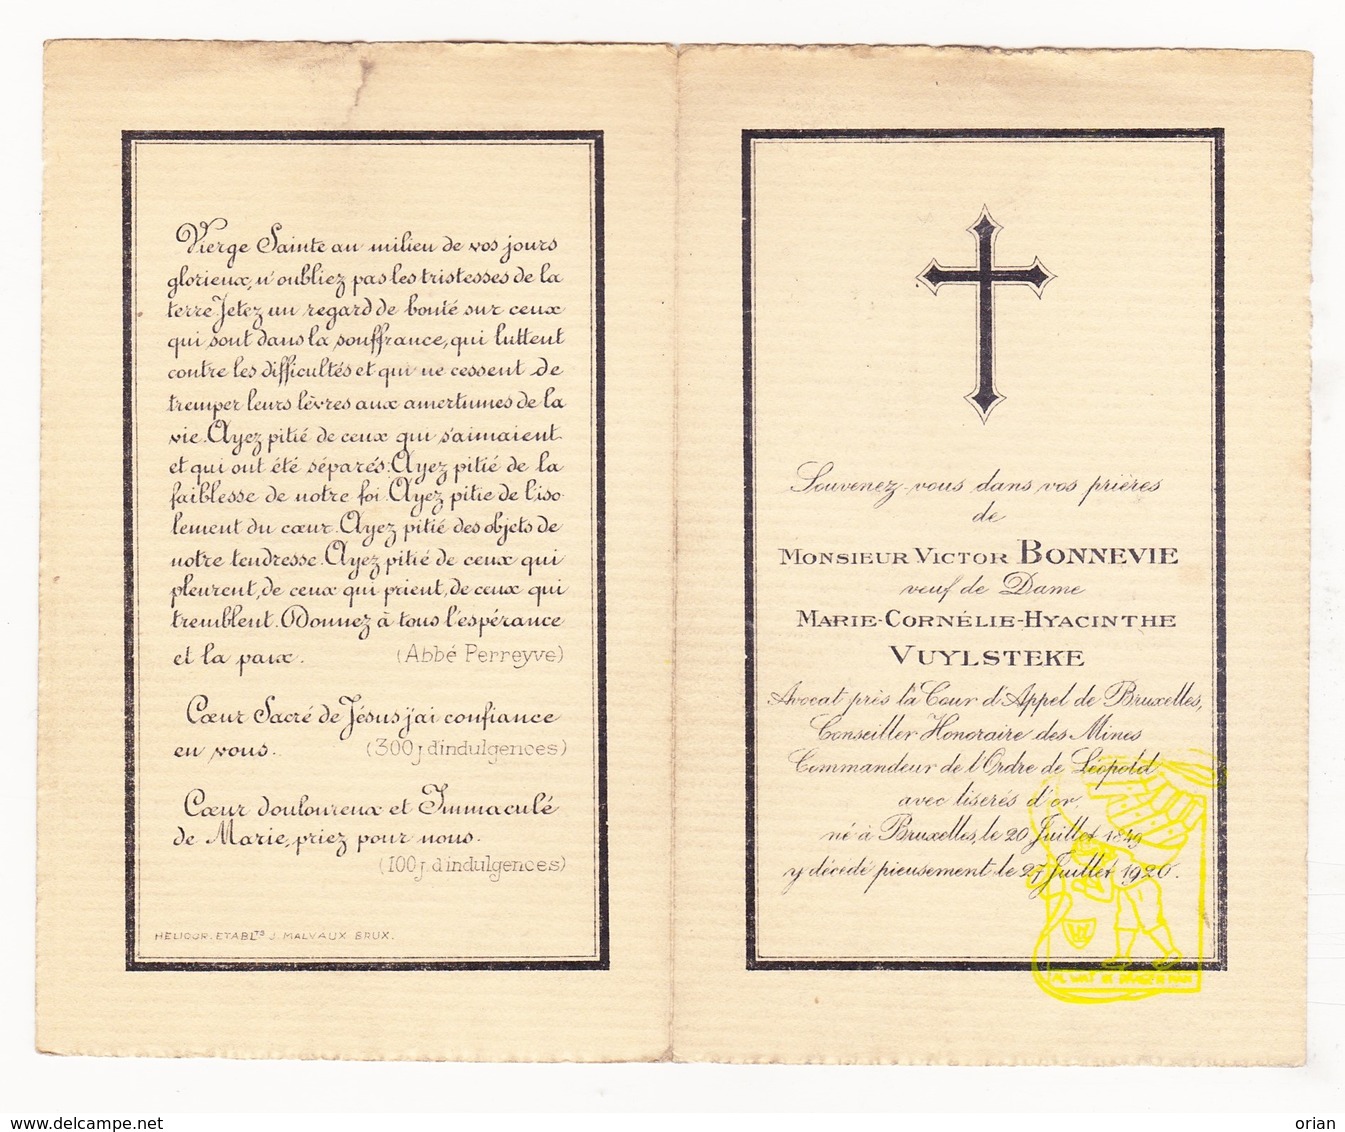 Vierge Sainte au milieu de vos jours
glorieux, n'oubliez pas les tristesses de la
terre. Jetez un regard de bonté sur ceux
qui sont dans la souffrance, qui luttent
contre les difficultés et qui ne cessent de
tremper leurs lèvres aux amertumes de la
vie. Ayez pitié de ceux qui s'aimaient
et qui ont été séparés. Ayez pitié de la
faiblesse de notre foi. Ayez pitie de l'iso-
lement du cœur. Ayez pitié des objets de
notre tendresse. Ayez pitié de ceux qui
pleurent, de ceux qui prient, de ceux qui
tremblent. Donnez à tous l'espérance
et la paix. (Abbé Perreyve)
Cœur Sacré de Jésus j'ai confiance
en vous. (300 j d'indulgences)
Cœur douloureux et Immaculé
de Marie, priez pour nous.
(100 j. d'indulgences)
HELIOGR. ETABLTS J. MALVAUX BRUX.
Souvenez-vous dans vos prières
de
MONSIEUR VICTOR BONNEVIE
veuf de Dame
MARIE-CORNÉLIE-HYACINTHE
VUYLSTEKE
Avocat près la Cour d'Appel de Bruxelles,
Conseiller Honoraire des Mines
Commandeur de l'Ordre de Léopold
avec liserés d'or.
né à Bruxelles, le 20 Juillet 1849
y décédé pieusement le 27 Juillet 1926.
www.delcampe.net
orian